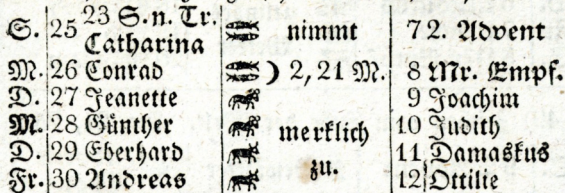 S. 25 23 S. n. Tr. Catharina nimmt 7 2. Advent
M. 26 Conrad ) 2, 21 M. 8 Mr. Empf.
D. 27 Jeanette 9 Joachim
M. 28 Günther merklich 10 Judith
D. 29 Eberhard 11 Damaskus
Fr. 30 Andreas zu. 12 Ottilie